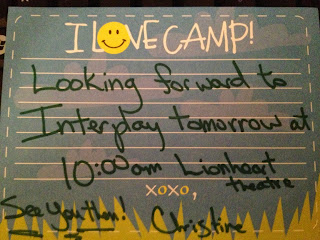 I LOVE CAMP!
Looking forward to
Interplay tomorrow at
10:00am Lionheart
theatre
xoxo,
See you then! Christine